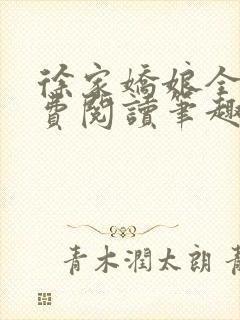 徐家嬌娘全
費閱讀筆趣
青木潤太朗